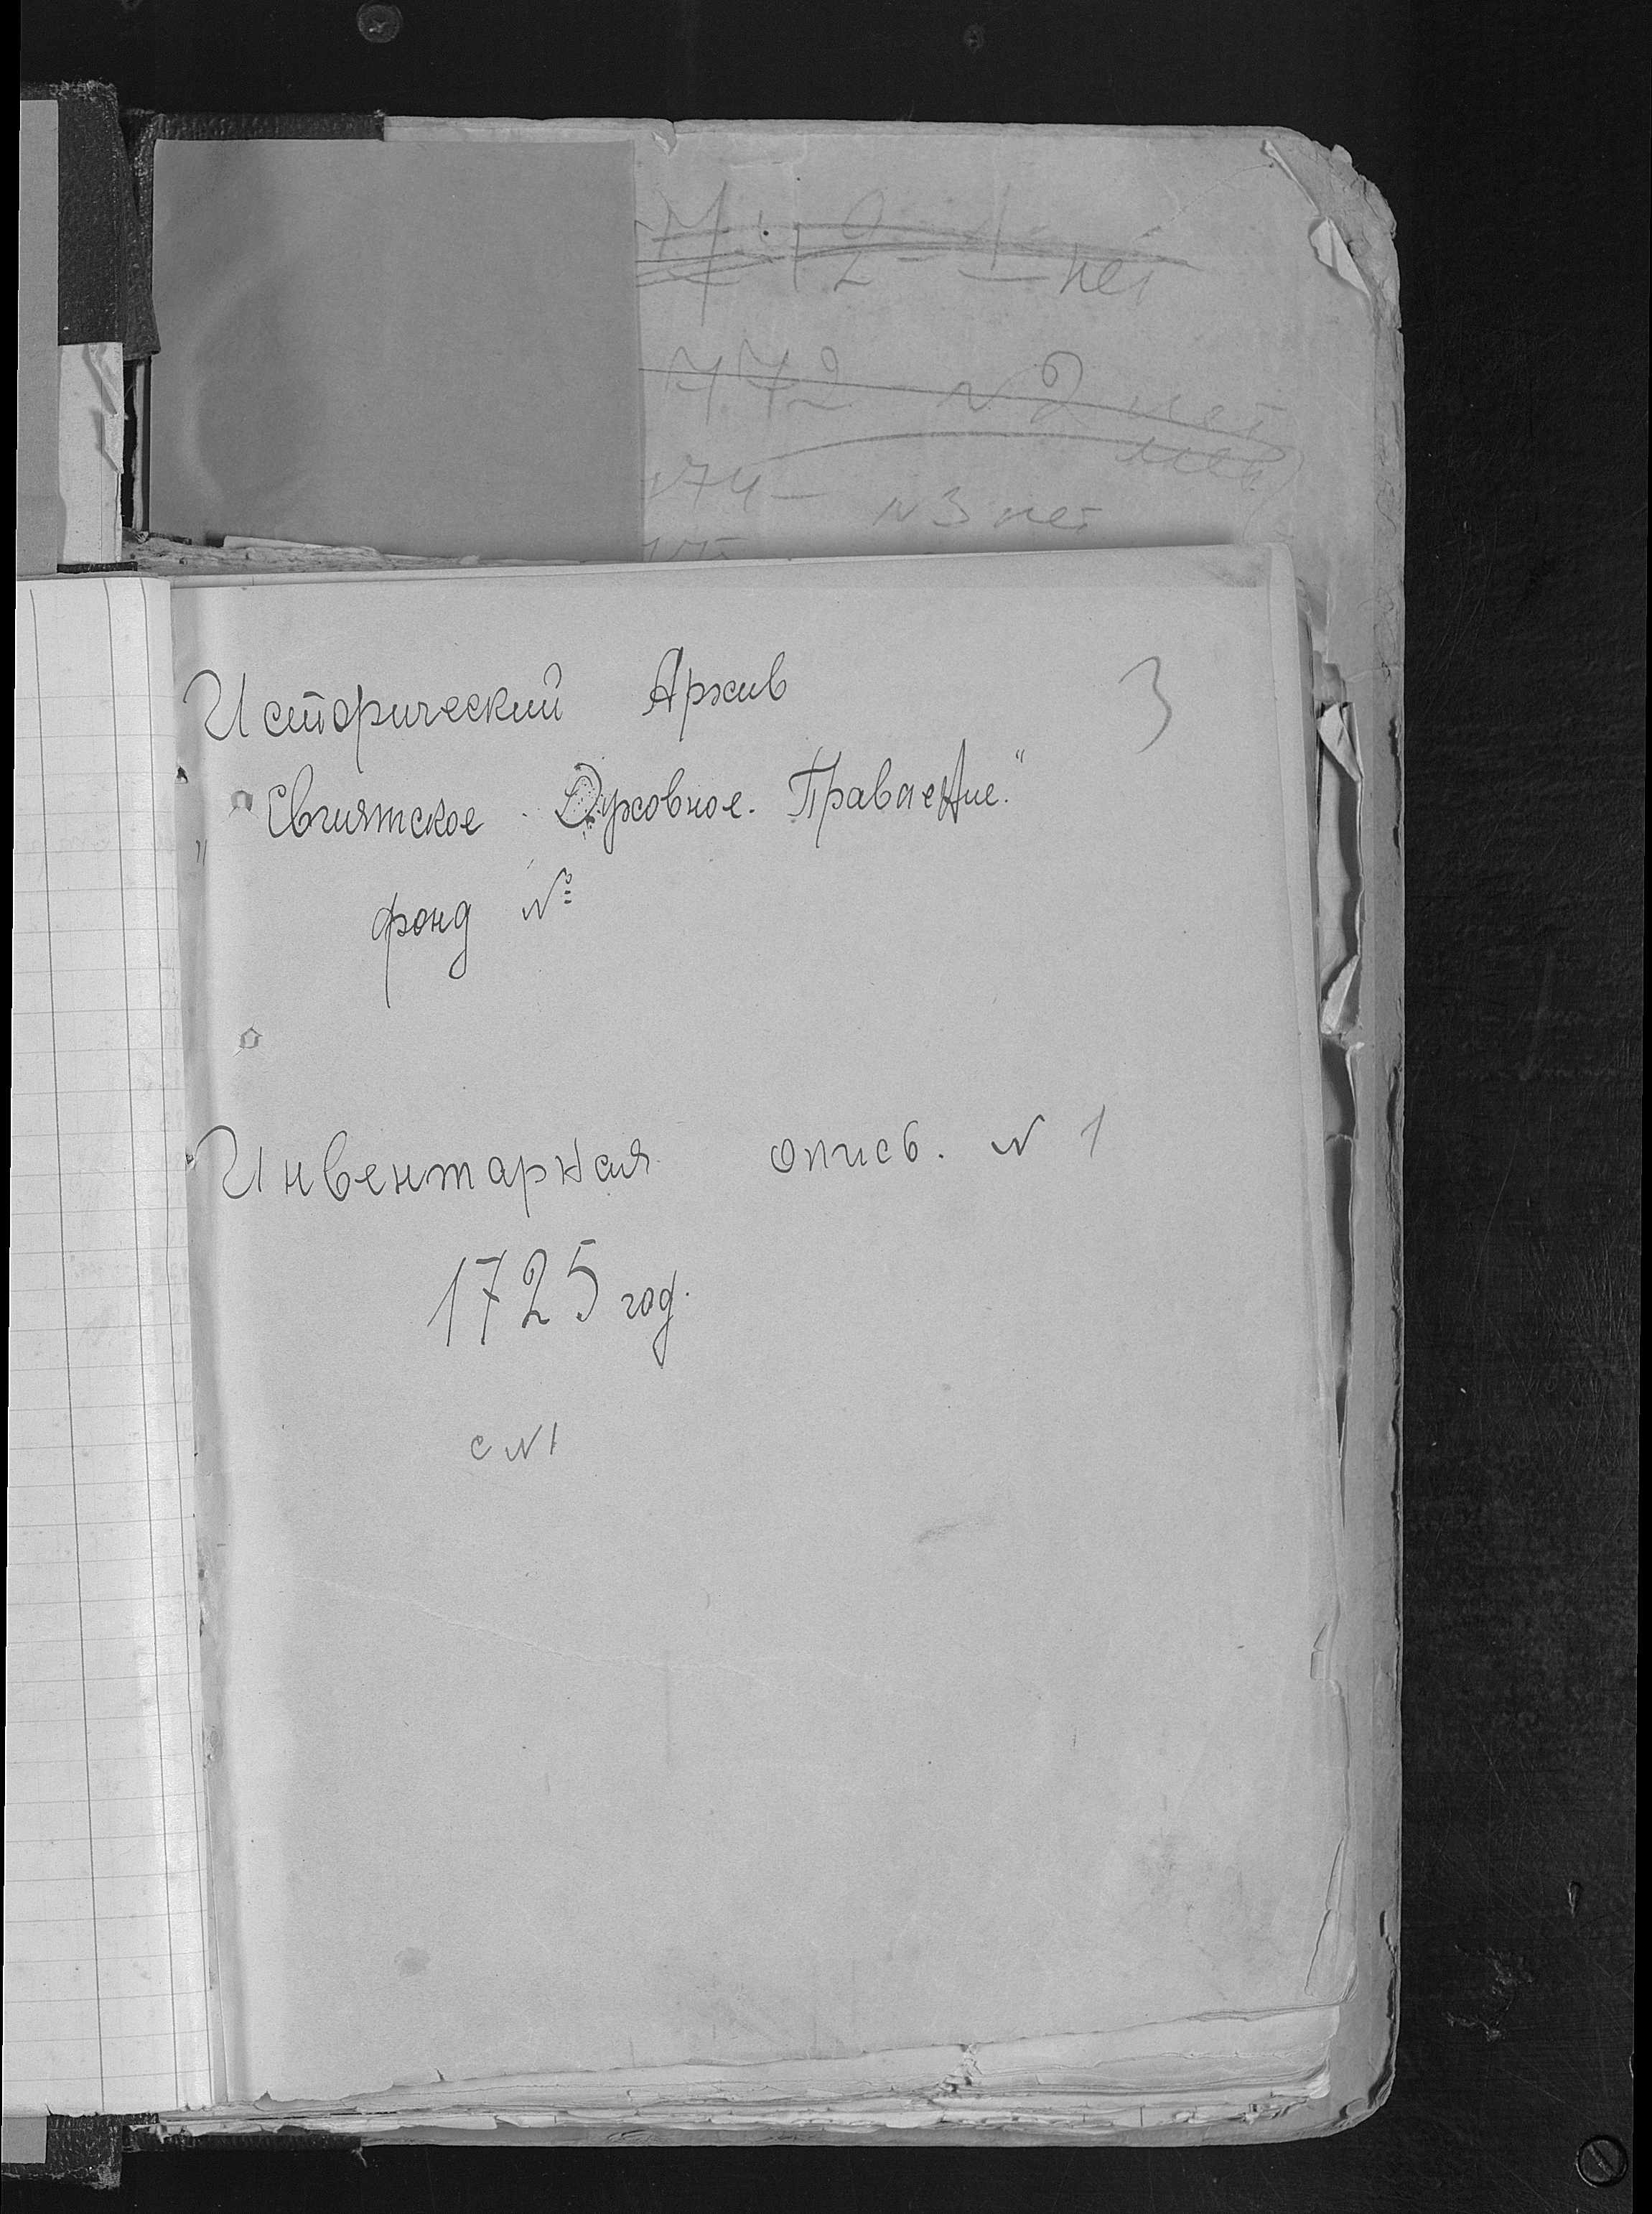 772 №2 нет
174-
№3 нет
3
Исторический Архив
"Свияжское Духовное. Правление."
фонд №
Инвентарная опись. № 1
1725 год.
с №1